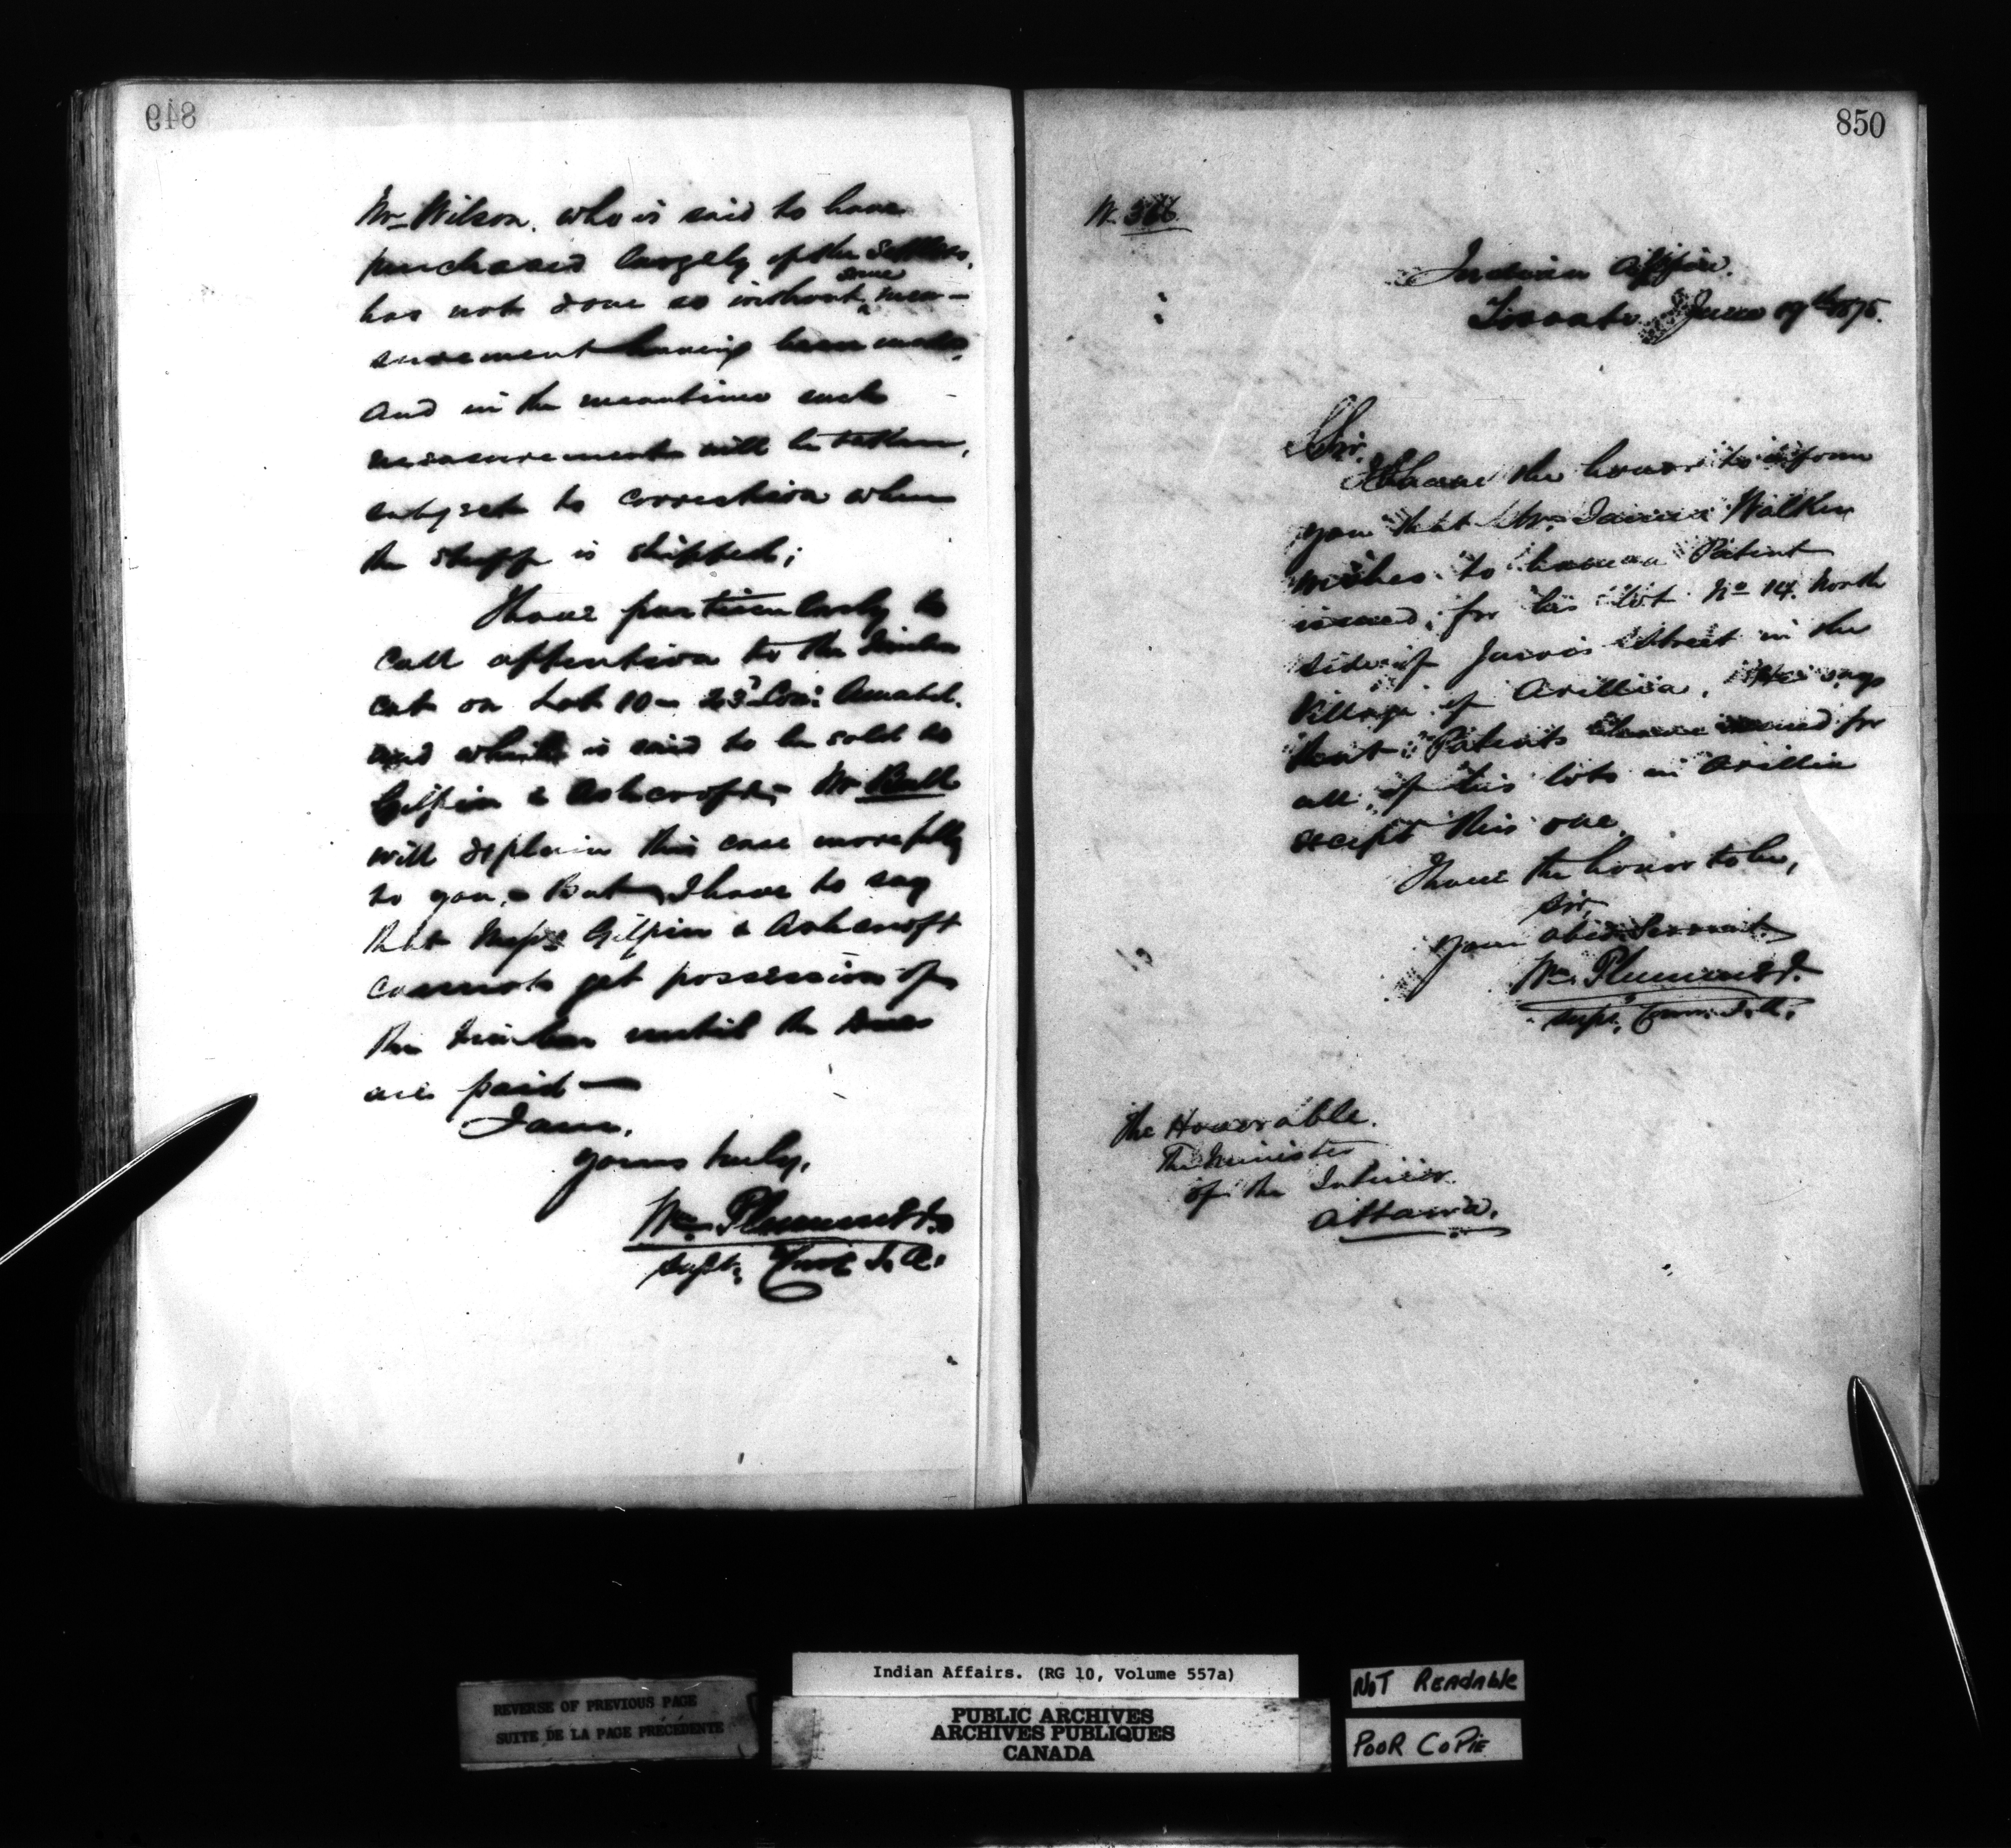 849
Mr Wilson. who is said to have
purchased largely of the Settlers,
has not done so without some mea-
surement having been made,
and in the meantime such
measurements will be taken,
subject to correction when
the stuff is shipped;
I have particularly to
call attention to the timber
cut on Lot 10 - 23d Con: Amabel.
and which is said to be sold to
Gilpin & Ashcroft; - Mr Bull
will explain this case more fully
to you, - But I have to say
that Messrs Gilpin & Ashcroft
cannot get possession of
this timber until the dues
are paid —
I am,
yours truly,
Wm Plummer
Supt. Comr I. A.
850
N. 366
Indian Office.
Toronto June 1875.
Sir,
I have the honor to inform
you that Mr James Walker
wishes to have a Patent
issued, for his lot No 14. North
side of Jarvis Street in the
Village of Orillia. He says
that Patents have issued for
all of his lots in Orillia
except this one.
I have the honor to be,
Sir,
Your obedt Servant
Wm Plummer
Supt. Comr. I. A.
The Honorable.
The Minister
of the Interior.
Ottawa.
REVERSE OF PREVIOUS PAGE
SUITE DE LA PAGE PRÉCÉDENTE
Indian Affairs. (RG 10, Volume 557a)
PUBLIC ARCHIVES
ARCHIVES PUBLIQUES
CANADA
NOT READABLE
POOR COPIE